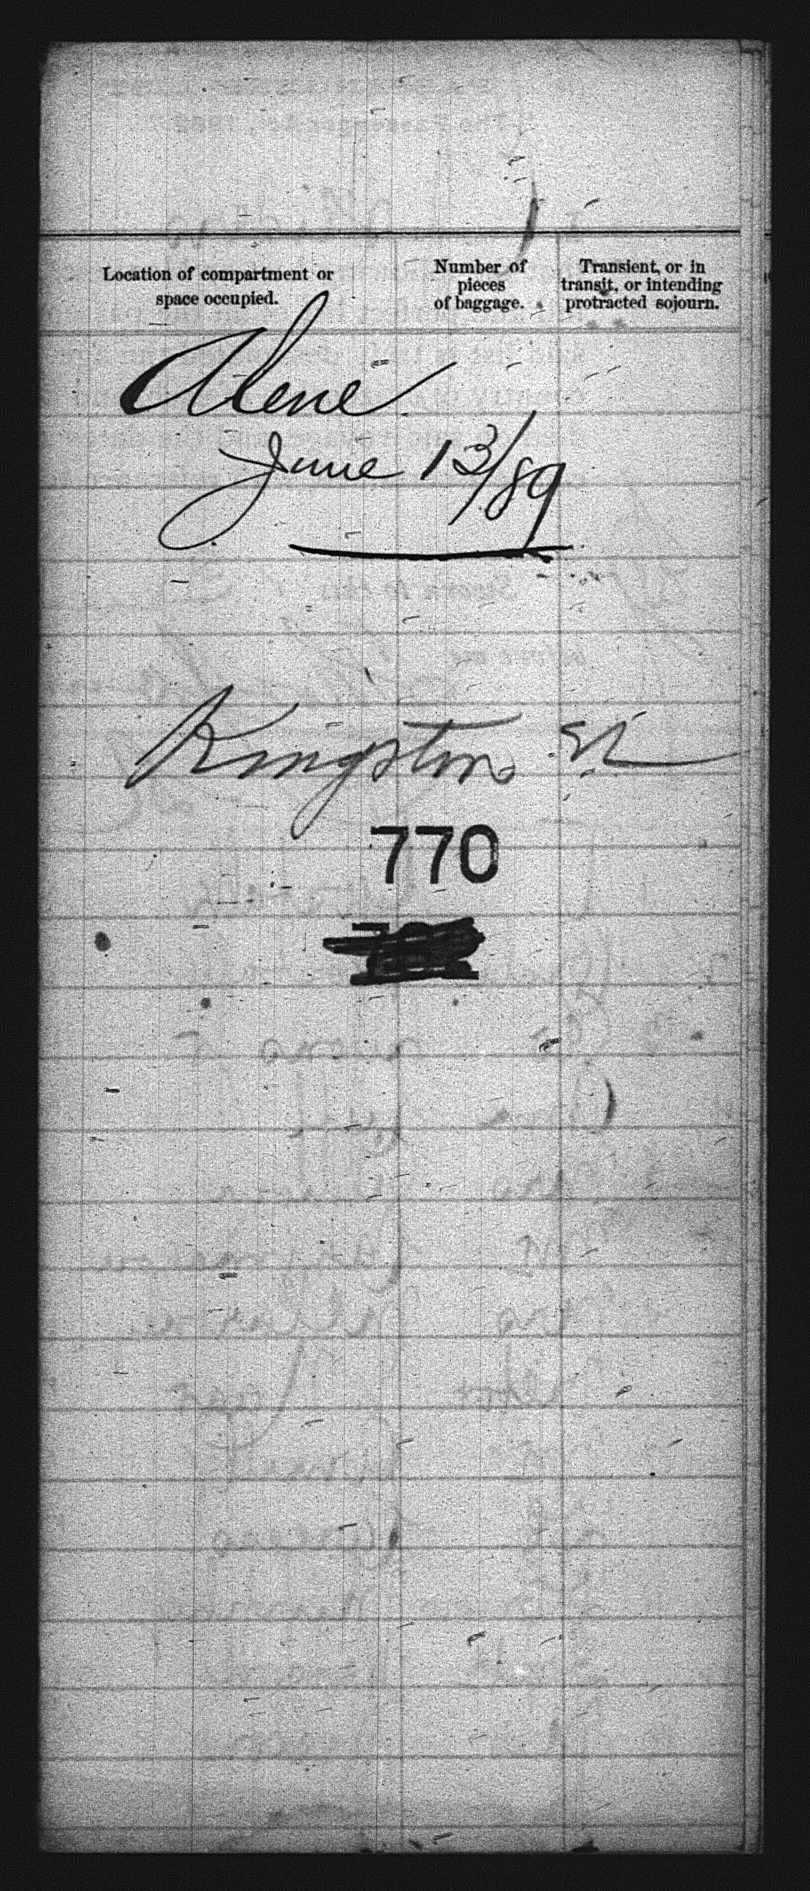 Location of compartment or
space occupied.
Number of
pieces
of baggage.
Transient, or in
transit, or intending
protracted sojourn.
Alene
June 13/89
Kingston
770